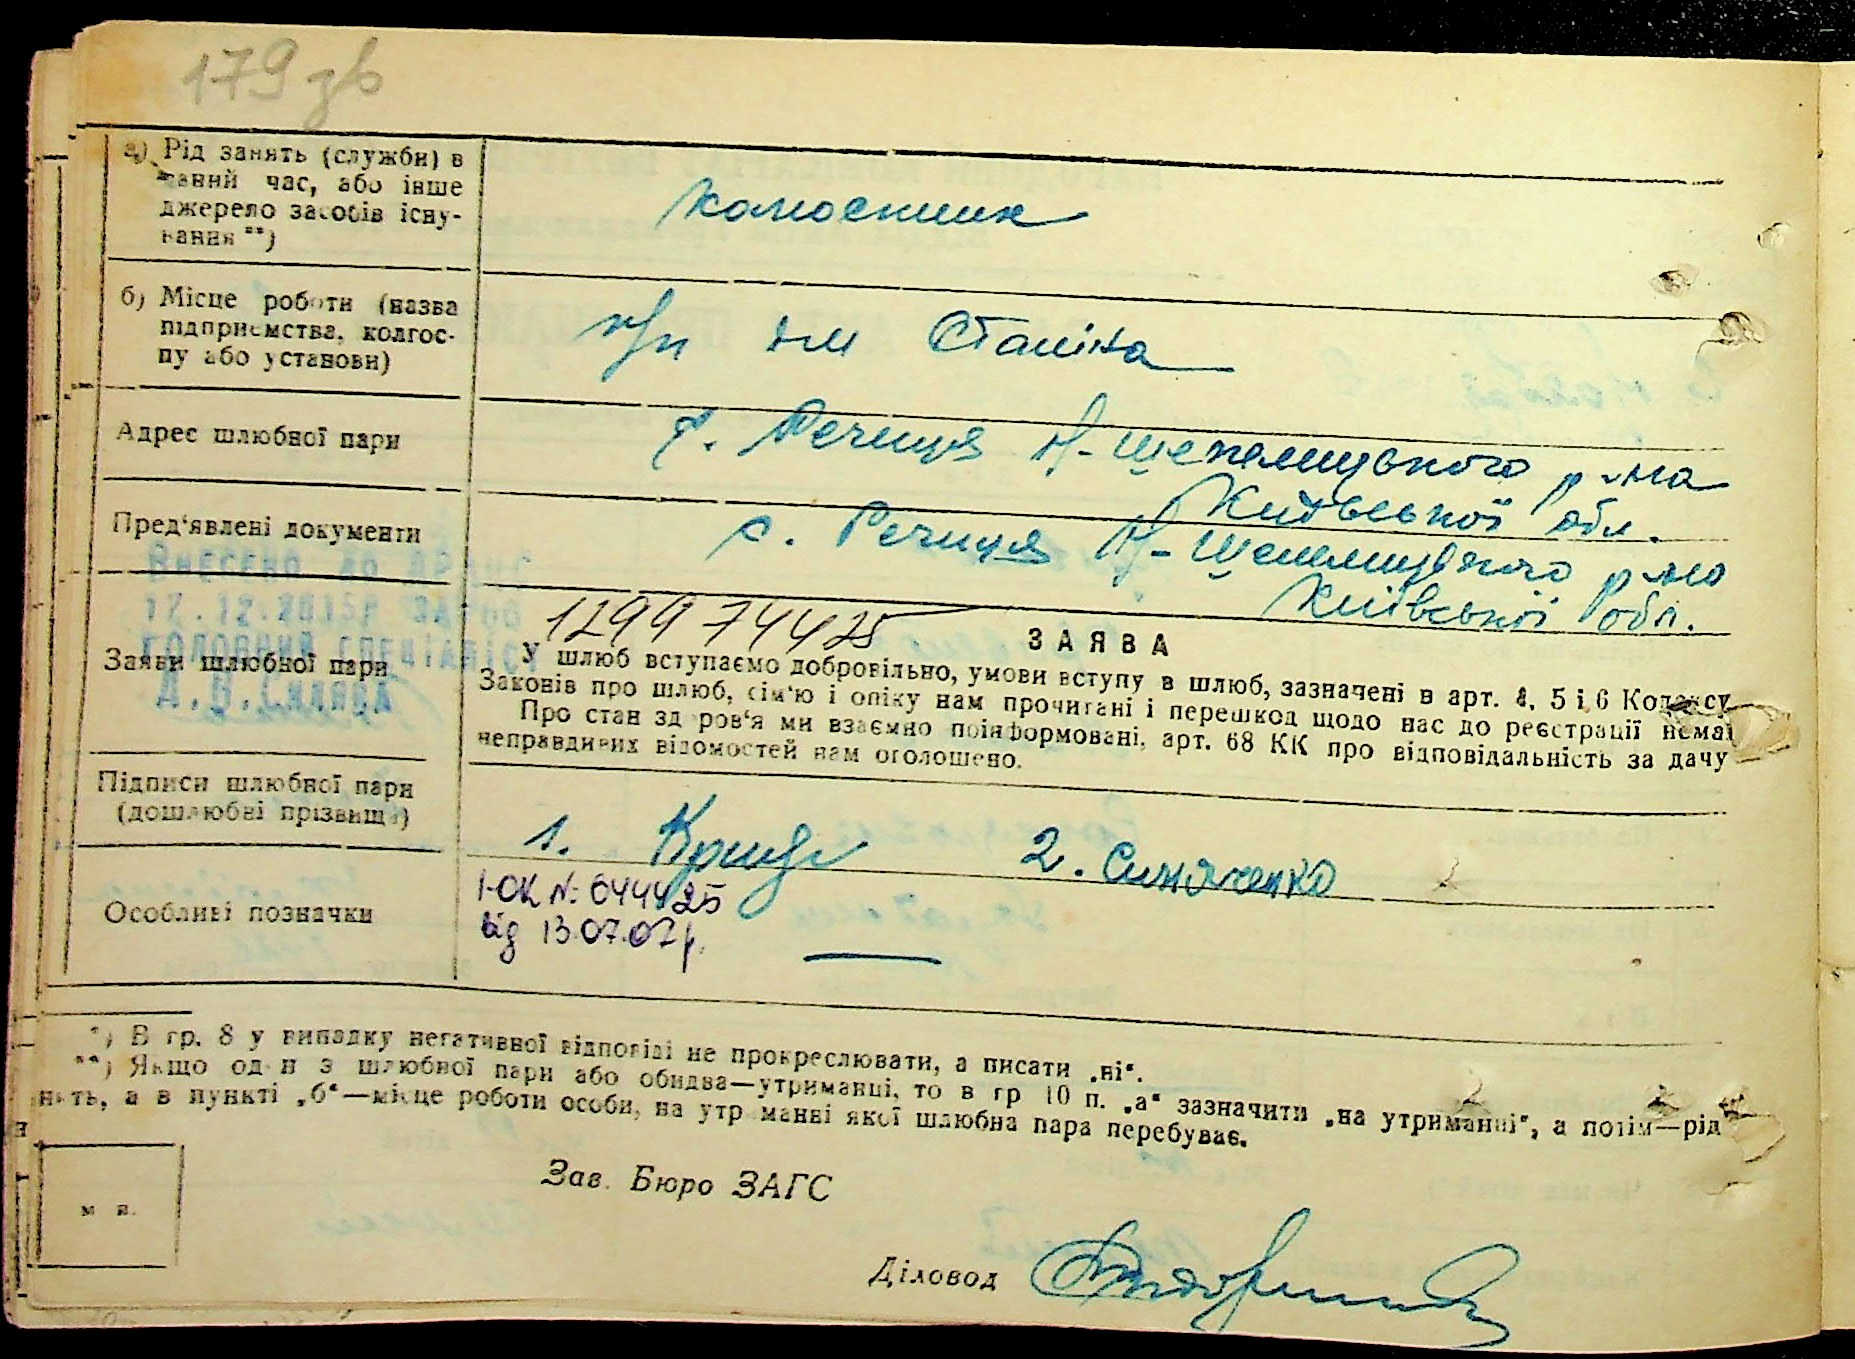 179 зв
а) Рід занять (служби) в
даний час, або інше
джерело засобів існу-
вання **)
колгоспник
б) Місце роботи (назва
підприємства, колгос-
пу або установи)
к/г ім Сталіна
Адрес шлюбної пари
с. Речиця Н-Шепелицького р-на
Київської обл.
Пред'явлені документи
с. Речиця Н-Шепелицького р-на
Київської обл.
Внесено до
17.12.2015р
головний спеціаліст
1299 74425
Заяви шлюбної пари
ЗАЯВА
У шлюб вступаємо добровільно, умови вступу в шлюб, зазначені в арт. 4, 5 і 6 Кодексу
Законів про шлюб, сім'ю і опіку нам прочитані і перешкод щодо нас до реєстрації нема.
Про стан здоров'я ми взаємно поінформовані, арт. 68 КК про відповідальність за дачу
неправдивих відомостей нам оголошено.
Підписи шлюбної пари
(дошлюбні прізвища)
1.
2. Синяченко
Особливі позначки
І-ОК № 644425
від 13.07.07р.
*) В гр. 8 у випадку негативної відповіді не прокреслювати, а писати „ні“.
**) Якщо один з шлюбної пари або обидва—утриманці, то в гр 10 п. „а“ зазначити „на утриманні“, а потім—рід
нять, а в пункті „б“—місце роботи особи, на утриманні якої шлюбна пара перебуває.
Зав. Бюро ЗАГС
м п.
Діловод